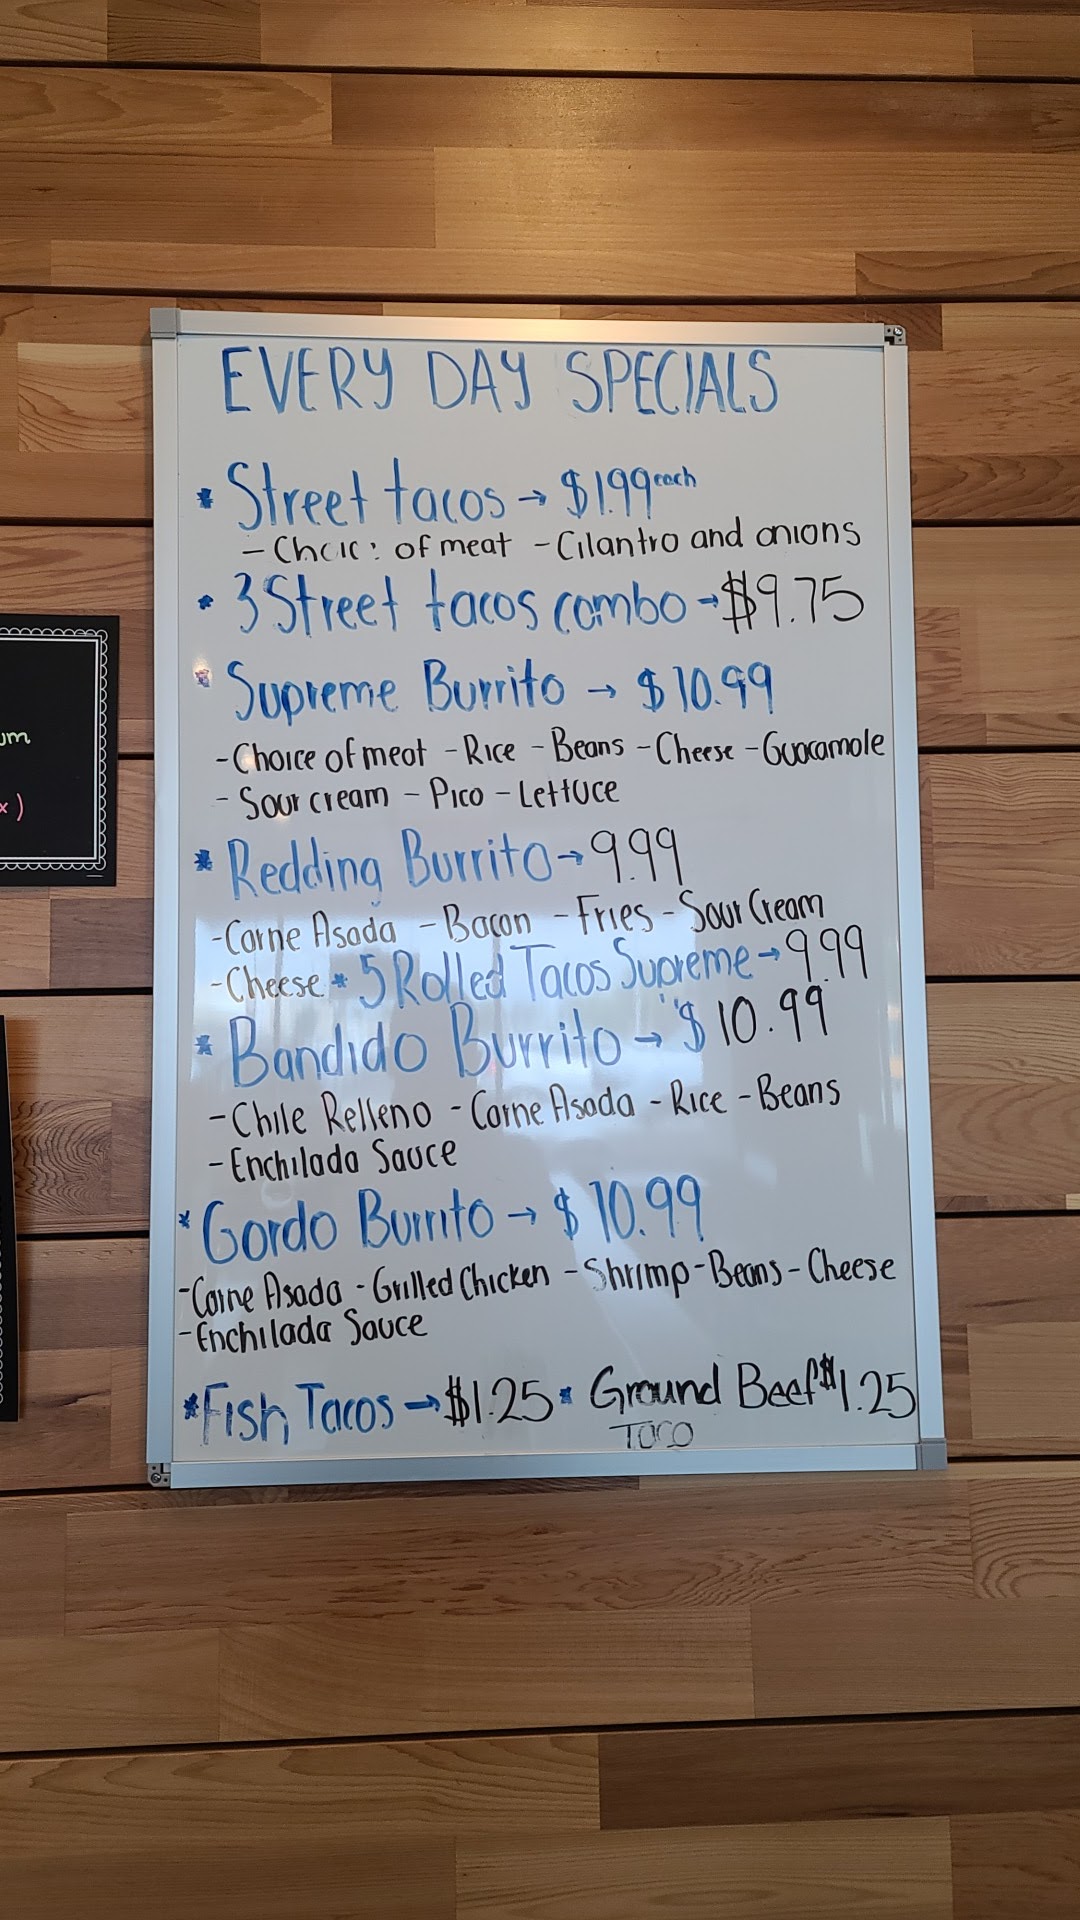 EVERY DAY SPECIALS
* Street tacos → $1.99 each
- Choic: of meat - Cilantro and onions
* 3 Street tacos combo → $9.75
* Supreme Burrito → $10.99
- Choice of meat - Rice - Beans - Cheese - Guacamole
- Sour cream - Pico - Lettuce
* Redding Burrito → 9.99
- Carne Asada - Bacon - Fries - Sour Cream
- Cheese * 5 Rolled Tacos Supreme → 9.99
* Bandido Burrito → $10.99
- Chile Relleno - Carne Asada - Rice - Beans
- Enchilada Sauce
* Gordo Burrito → $10.99
- Carne Asada - Grilled Chicken - Shrimp - Beans - Cheese
- Enchilada Sauce
* Fish Tacos → $1.25 * Ground Beef $1.25
Taco